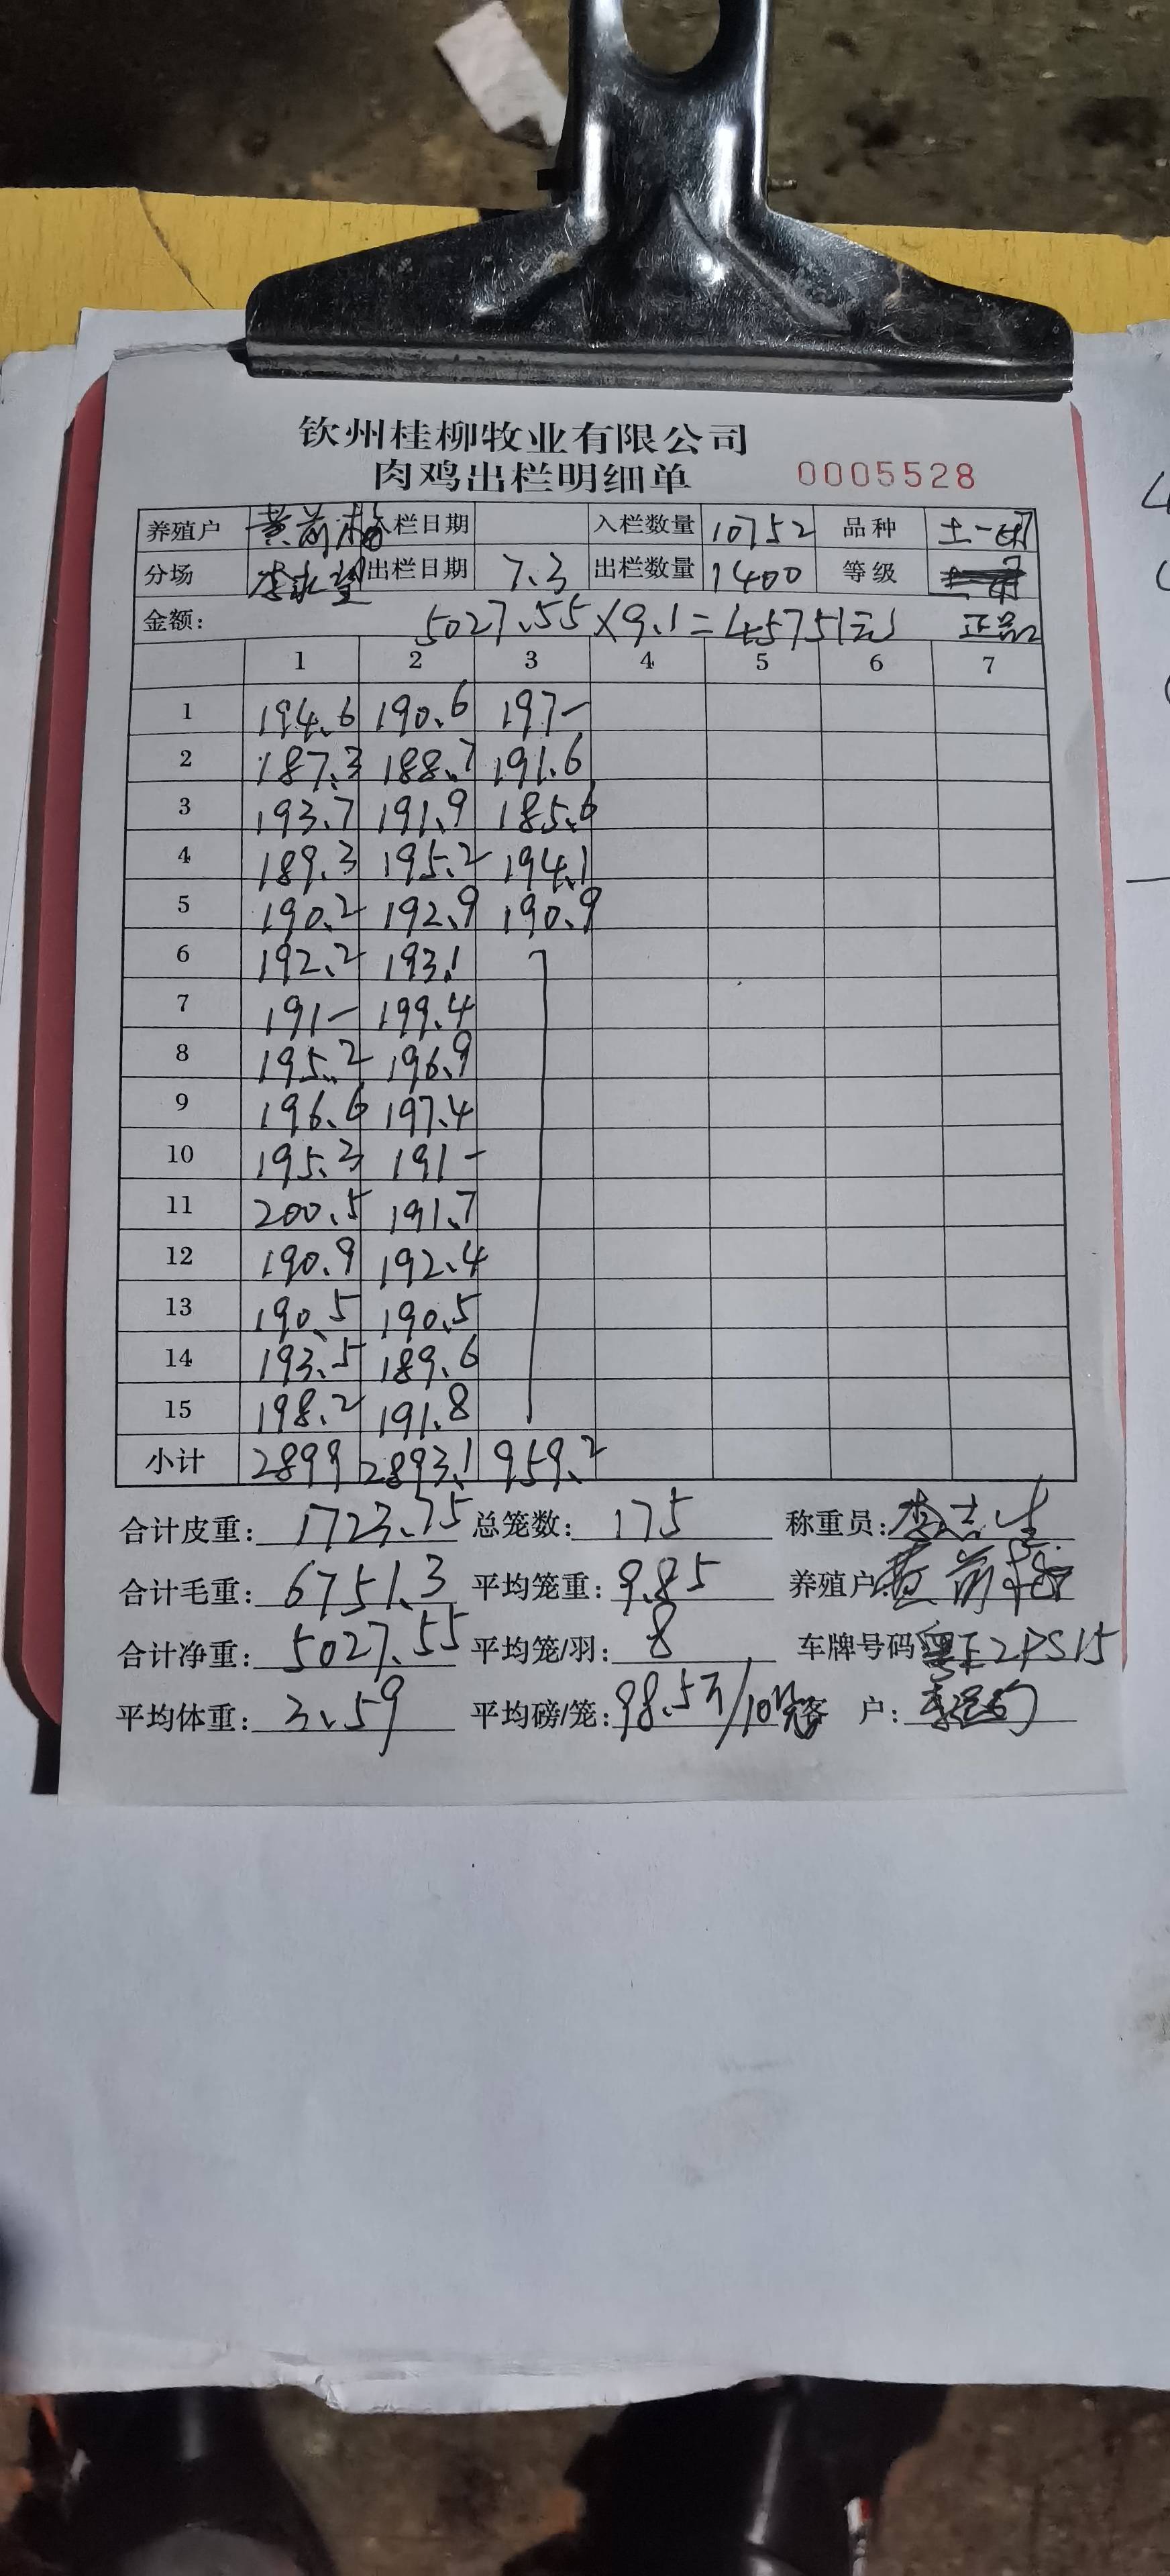 钦州桂柳牧业有限公司
肉鸡出栏明细单 0005528
养殖户 黄前梅 入栏日期 入栏数量 10752 品种 土一
分场 出栏日期 7.3 出栏数量 1400 等级
金额: 5027.55×9.1=45751元 正品
1 2 3 4 5 6 7
1 194.6 190.6 197-
2 187.3 188.7 191.6
3 193.7 191.9 185.6
4 189.3 195.2 194.1
5 190.2 192.9 190.9
6 192.2 193.1
7 191- 199.4
8 195.2 196.9
9 196.6 197.4
10 195.3 191-
11 200.5 191.7
12 190.9 192.4
13 190.5 190.5
14 193.5 189.6
15 198.2 191.8
小计 2899 2893.1 959.2
合计皮重: 1723.75 总笼数: 175 称重员: 李志生
合计毛重: 6751.3 平均笼重: 9.85 养殖户: 黄前梅
合计净重: 5027.55 平均笼/羽: 8 车牌号码
平均体重: 3.59 平均磅/笼: 98.5斤/10 客户: